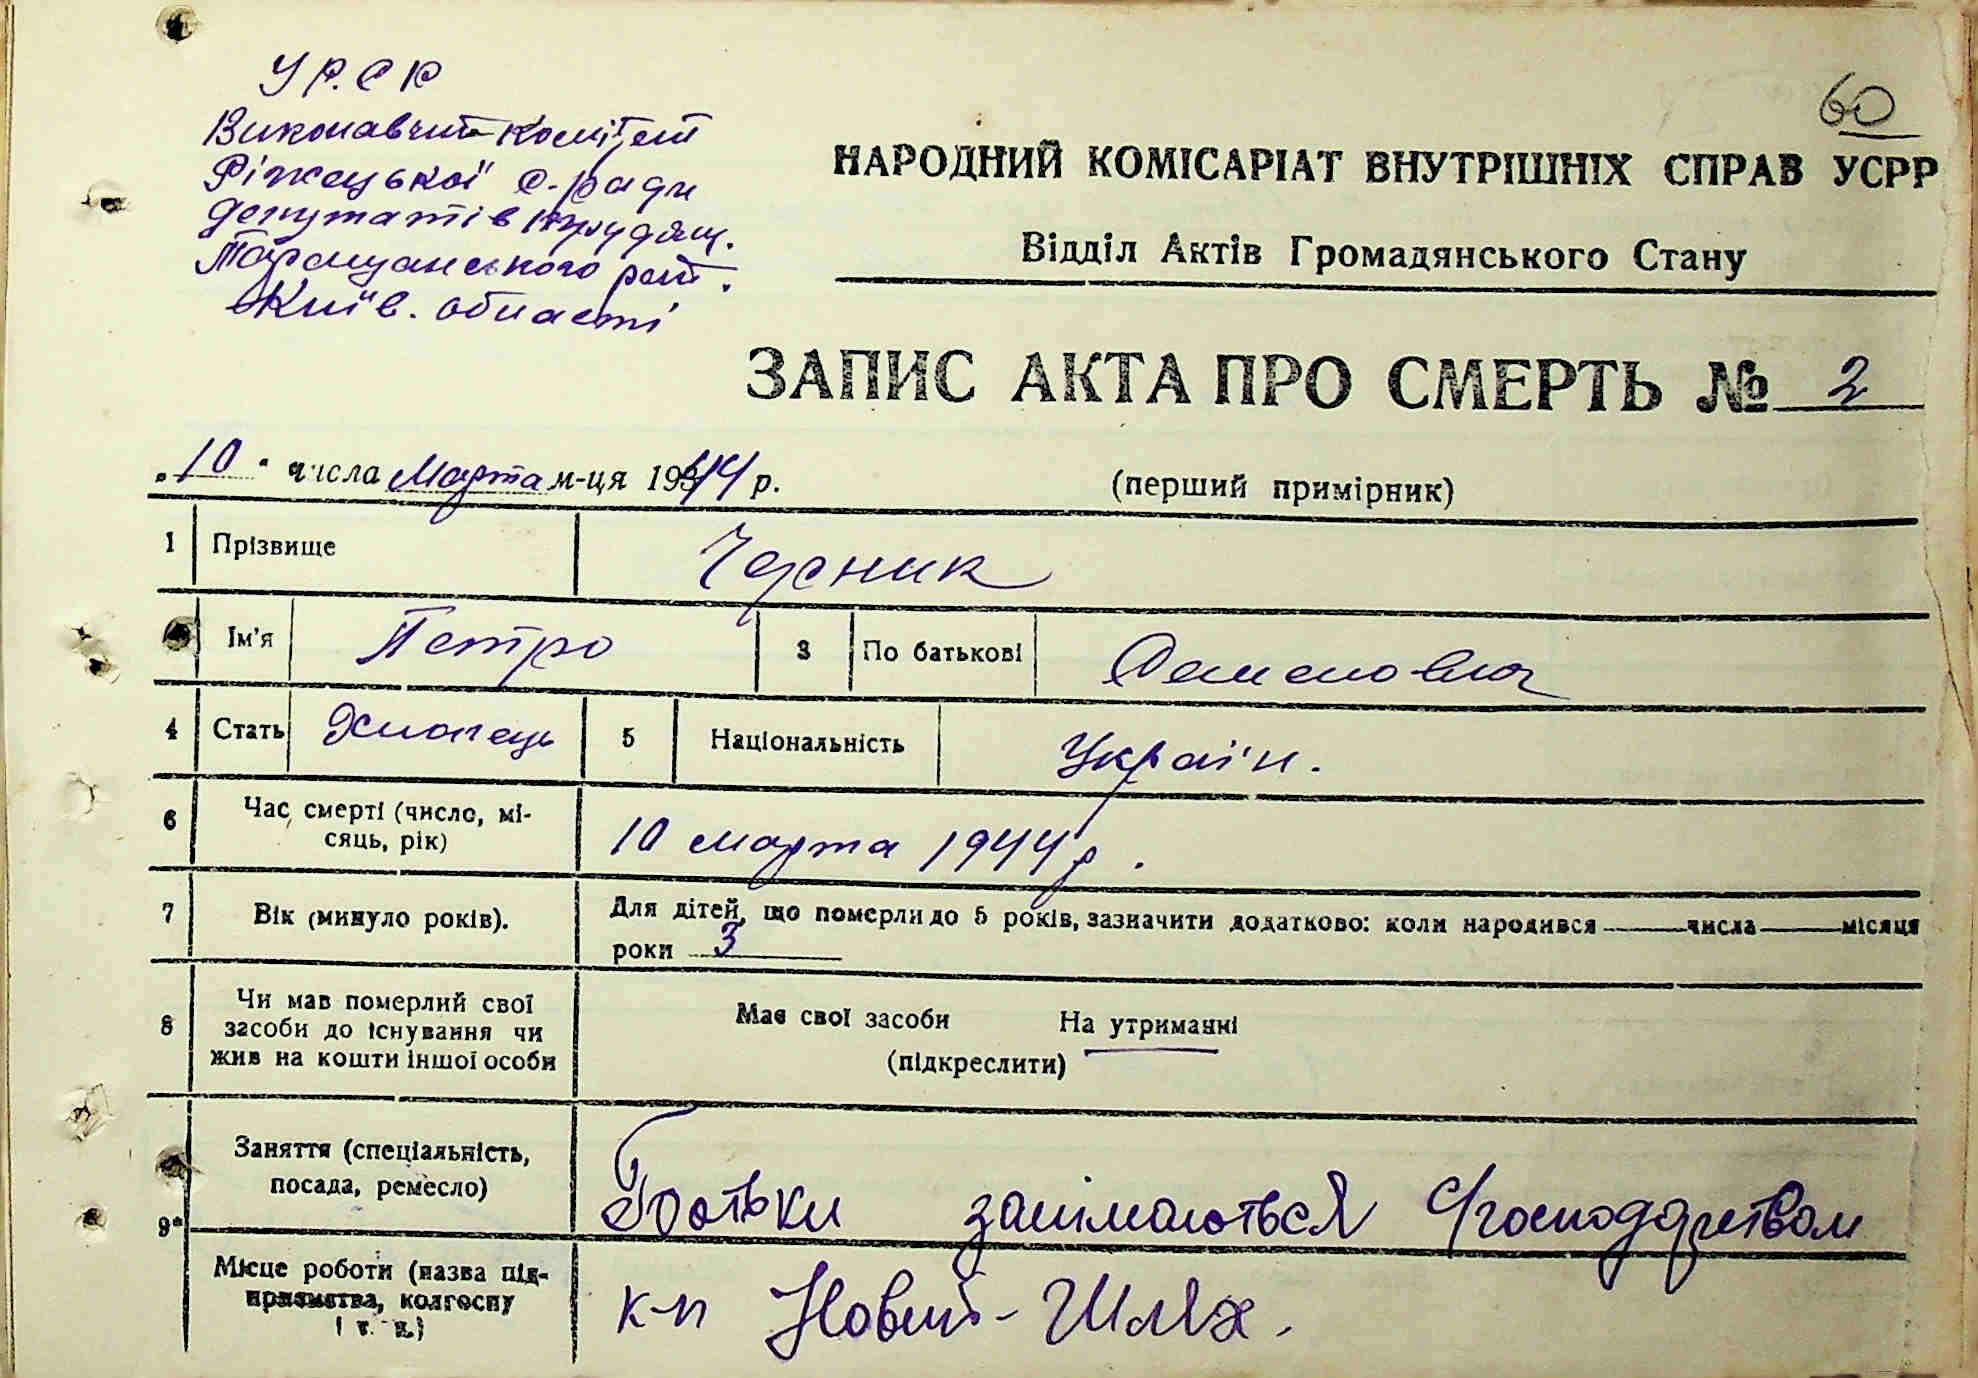 У Р.С Р
Виконавчий комітет
Ріжецької с.-ради
депутатів трудящ.
Таращанського рай.
Київ. області
60
НАРОДНИЙ КОМІСАРІАТ ВНУТРІШНІХ СПРАВ УСРР
Відділ Актів Громадянського Стану
ЗАПИС АКТА ПРО СМЕРТЬ № 2
„10" числа Марта м-ця 1944 р. (перший примірник)
1 Прізвище Чорник
Ім'я Петро 3 По батькові Семенович
4 Стать Хлопець 5 Національність Україн.
6 Час смерті (число, мі-
сяць, рік) 10 марта 1944 р.
7 Вік (минуло років). Для дітей, що померли до 5 років, зазначити додатково: коли народився ——числа——місяця
роки 3
8 Чи мав померлий свої
засоби до існування чи
жив на кошти іншої особи
Має свої засоби На утриманні
(підкреслити)
9* Заняття (спеціальність,
посада, ремесло) Батьки занімаються с/господарством
Місце роботи (назва під-
приємства, колгоспу
і т. и.) к-п Новий-Шлях.